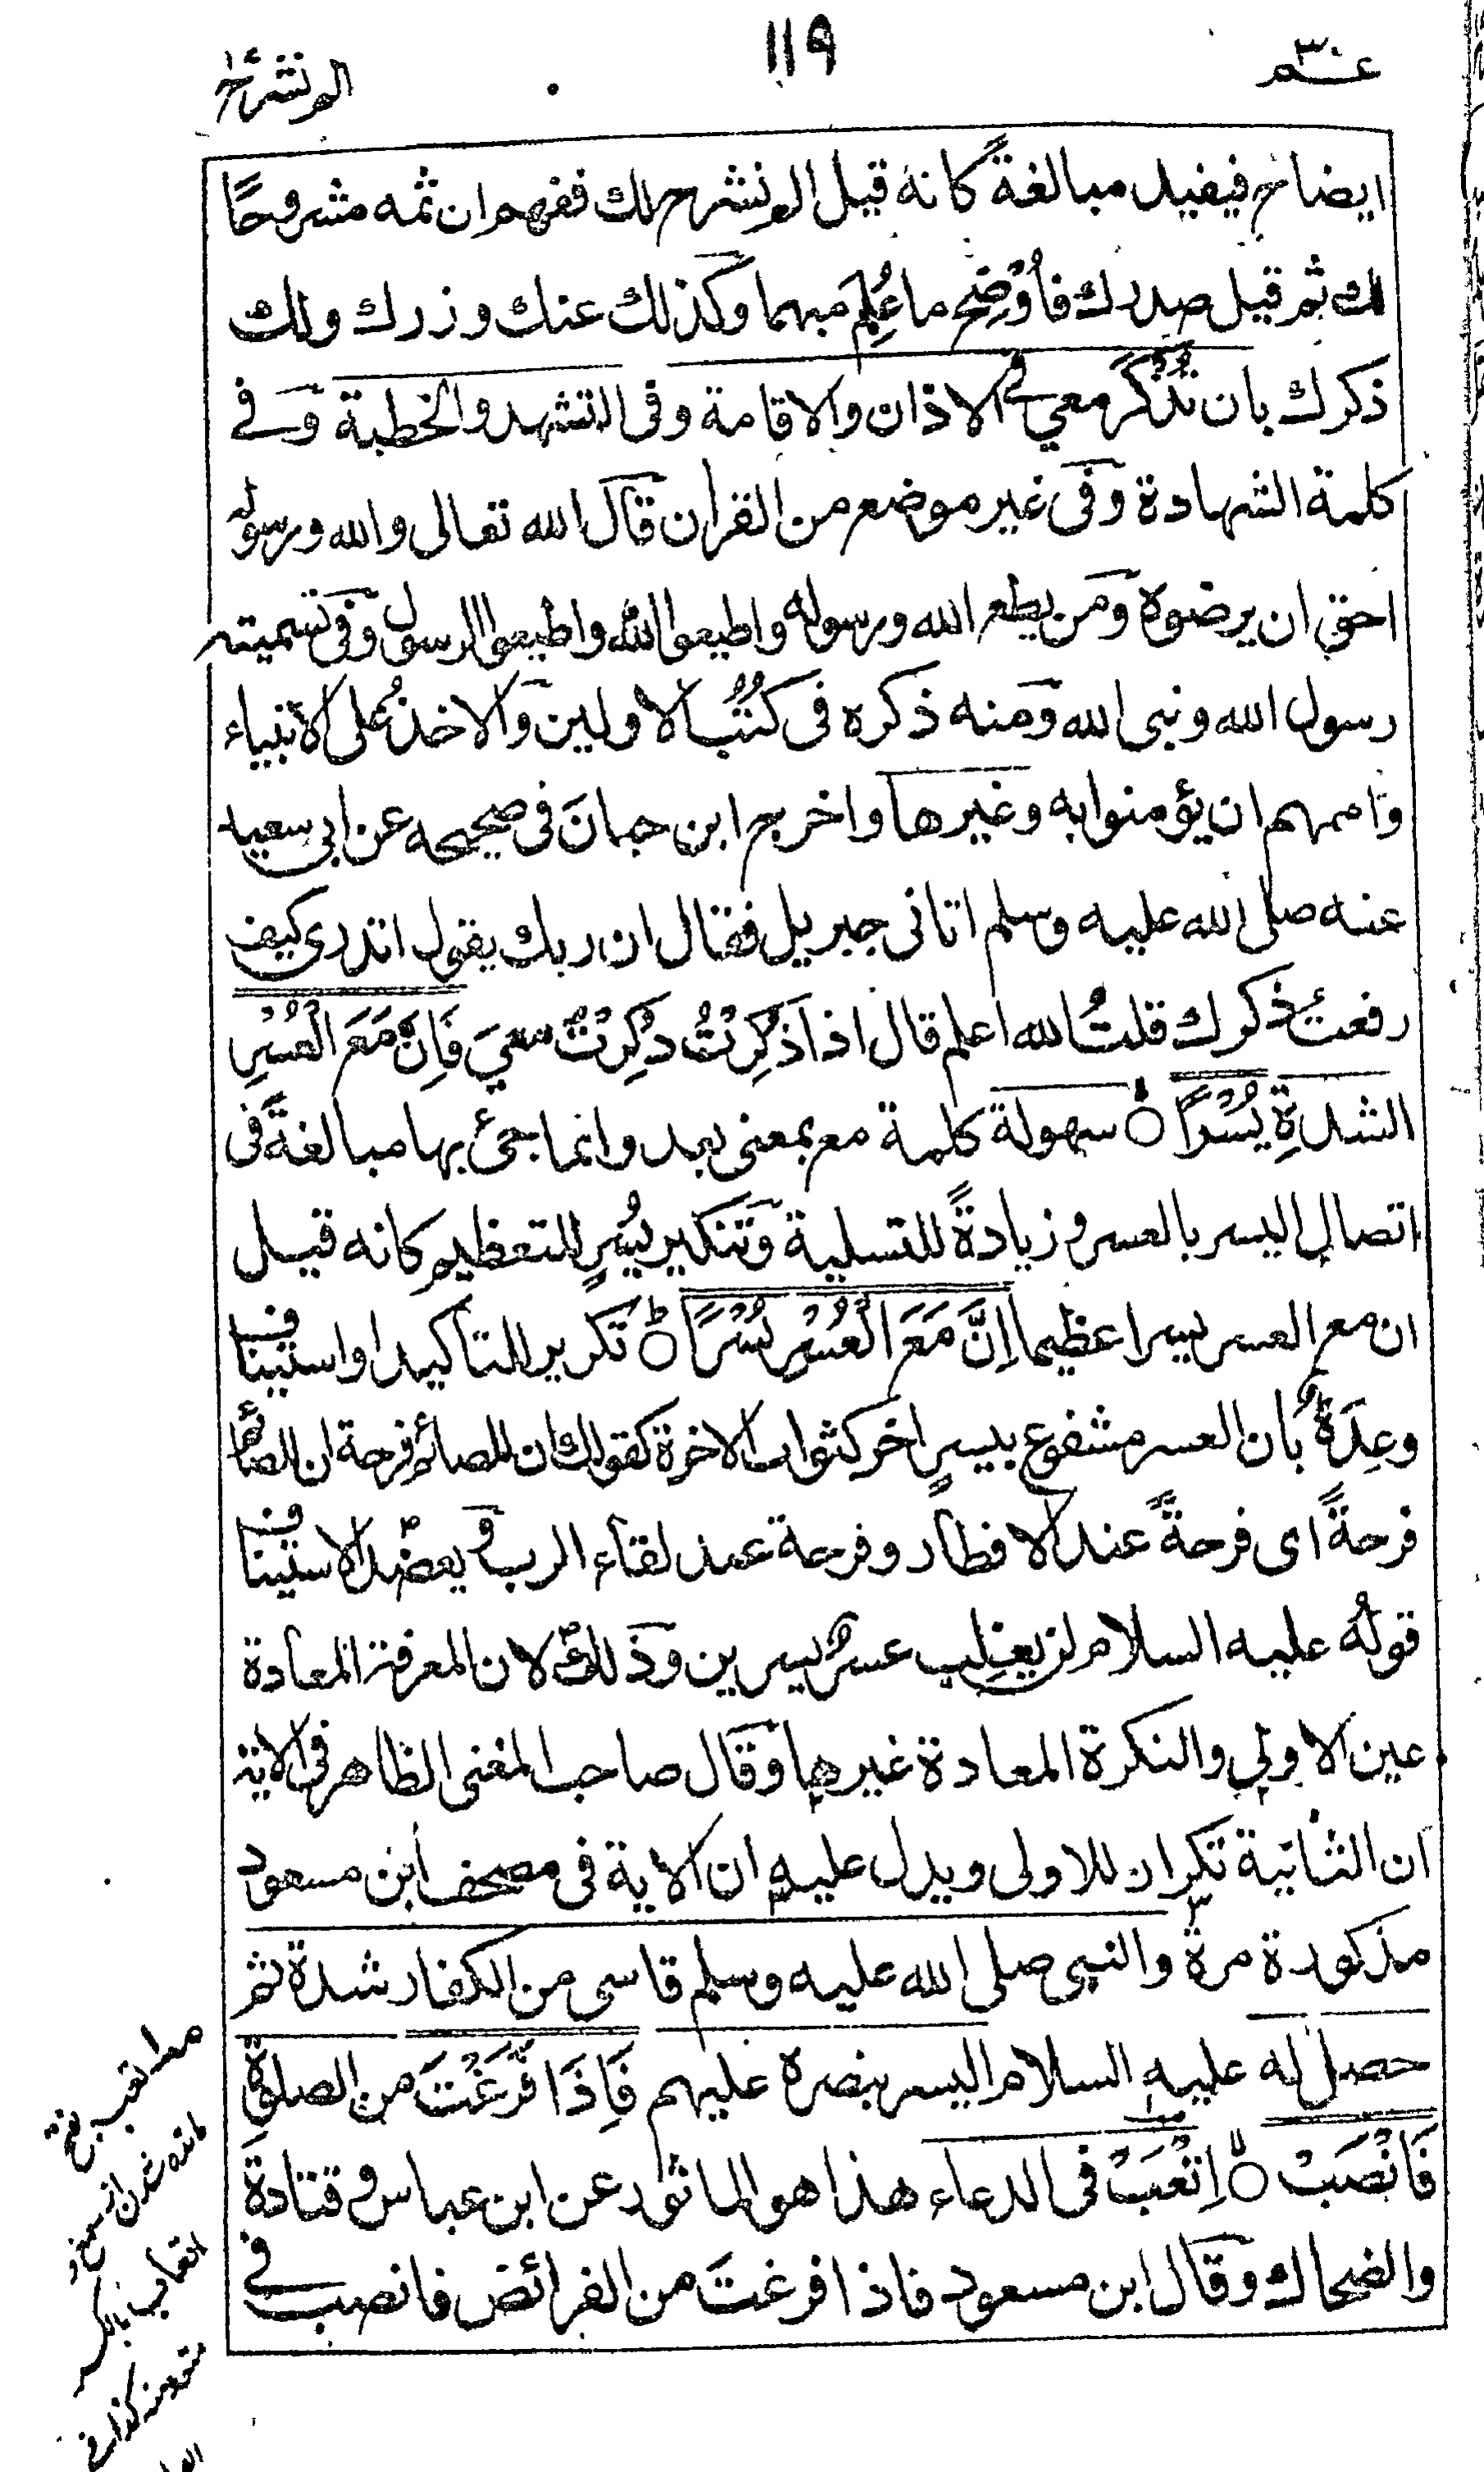 عـم ٣٠
١١٩
الم نشرح
ايضاح فيفيد مبالغةً كانه قيل الم نشرح لك ففهم ان ثمه مشروحًا
لك ثم قيل صدرك فأُوْضِحَ ما عُلِمَ مبهما وكذلك عنك وزرك ولك
ذكرك بان تُذْكَر معي في الاذان والاقامة وفى التشهد والخطبة وفے
كلمة الشهادة وفى غير موضع من القران قال الله تعالى والله ورسوله
احق ان يرضوه ومن يطع الله ورسوله واطيعوا الله واطيعوا الرسول وفى تسميته
رسول الله ونبى الله ومنه ذكره فى كُتُب الاولين والاخذُ على الانبياء
وأممهم ان يؤمنوا به وغيرها واخرج ابن حبان فى صحيحه عن ابى سعيد
عنه صلى الله عليه وسلم اتانى جبريل فقال ان ربك يقول اتدرى كيف
رفعت ذكرك قلتُ الله اعلم قال اذا ذُكِرْتُ ذُكِرْتَ معيَ فَاِنَّ مَعَ الْعُسْرِ
الشدةِ يُسْرًا ۝ سهولة كلمة مع بمعنى بعد وانما جئ بها مبالغةً فى
اتصال اليسر بالعسر وزيادةً للتسلية وتنكير يُسْرٍ للتعظيم كانه قيل
ان مع العسر يسرا عظيما اِنَّ مَعَ الْعُسْرِ يُسْرًا ۝ تكرير للتأكيد او استيناف
وعِدَةٌ بان العسر مشفوع بيسرٍ اخر كثواب الاخرة كقولك ان للصائم فرحة ان للصائم
فرحةً اى فرحةً عند الافطار وفرحة عند لقاء الرب ويعضد الاستيناف
قولُه عليه السلام لن يغلب عسر يسرين وذلك لان المعرفة المعادة
عين الاولى والنكرة المعادة غيرها وقال صاحب المغنى الظاهر فى الاية
ان الثانية تكرار للاولى ويدل عليه ان الاية فى مصحف ابن مسعود
مذكورة مرة والنبى صلى الله عليه وسلم قاسى من الكفار شدة ثم
حصل له عليه السلام اليسر بنصره عليهم فَاِذَا فَرَغْتَ من الصلوةِ
فَانْصَبْ ۝ اِتْعَبْ فى الدعاء هذا هو الماثور عن ابن عباس وقتادة
والضحاك وقال ابن مسعود فاذا فرغتَ من الفرائض فانصب فے